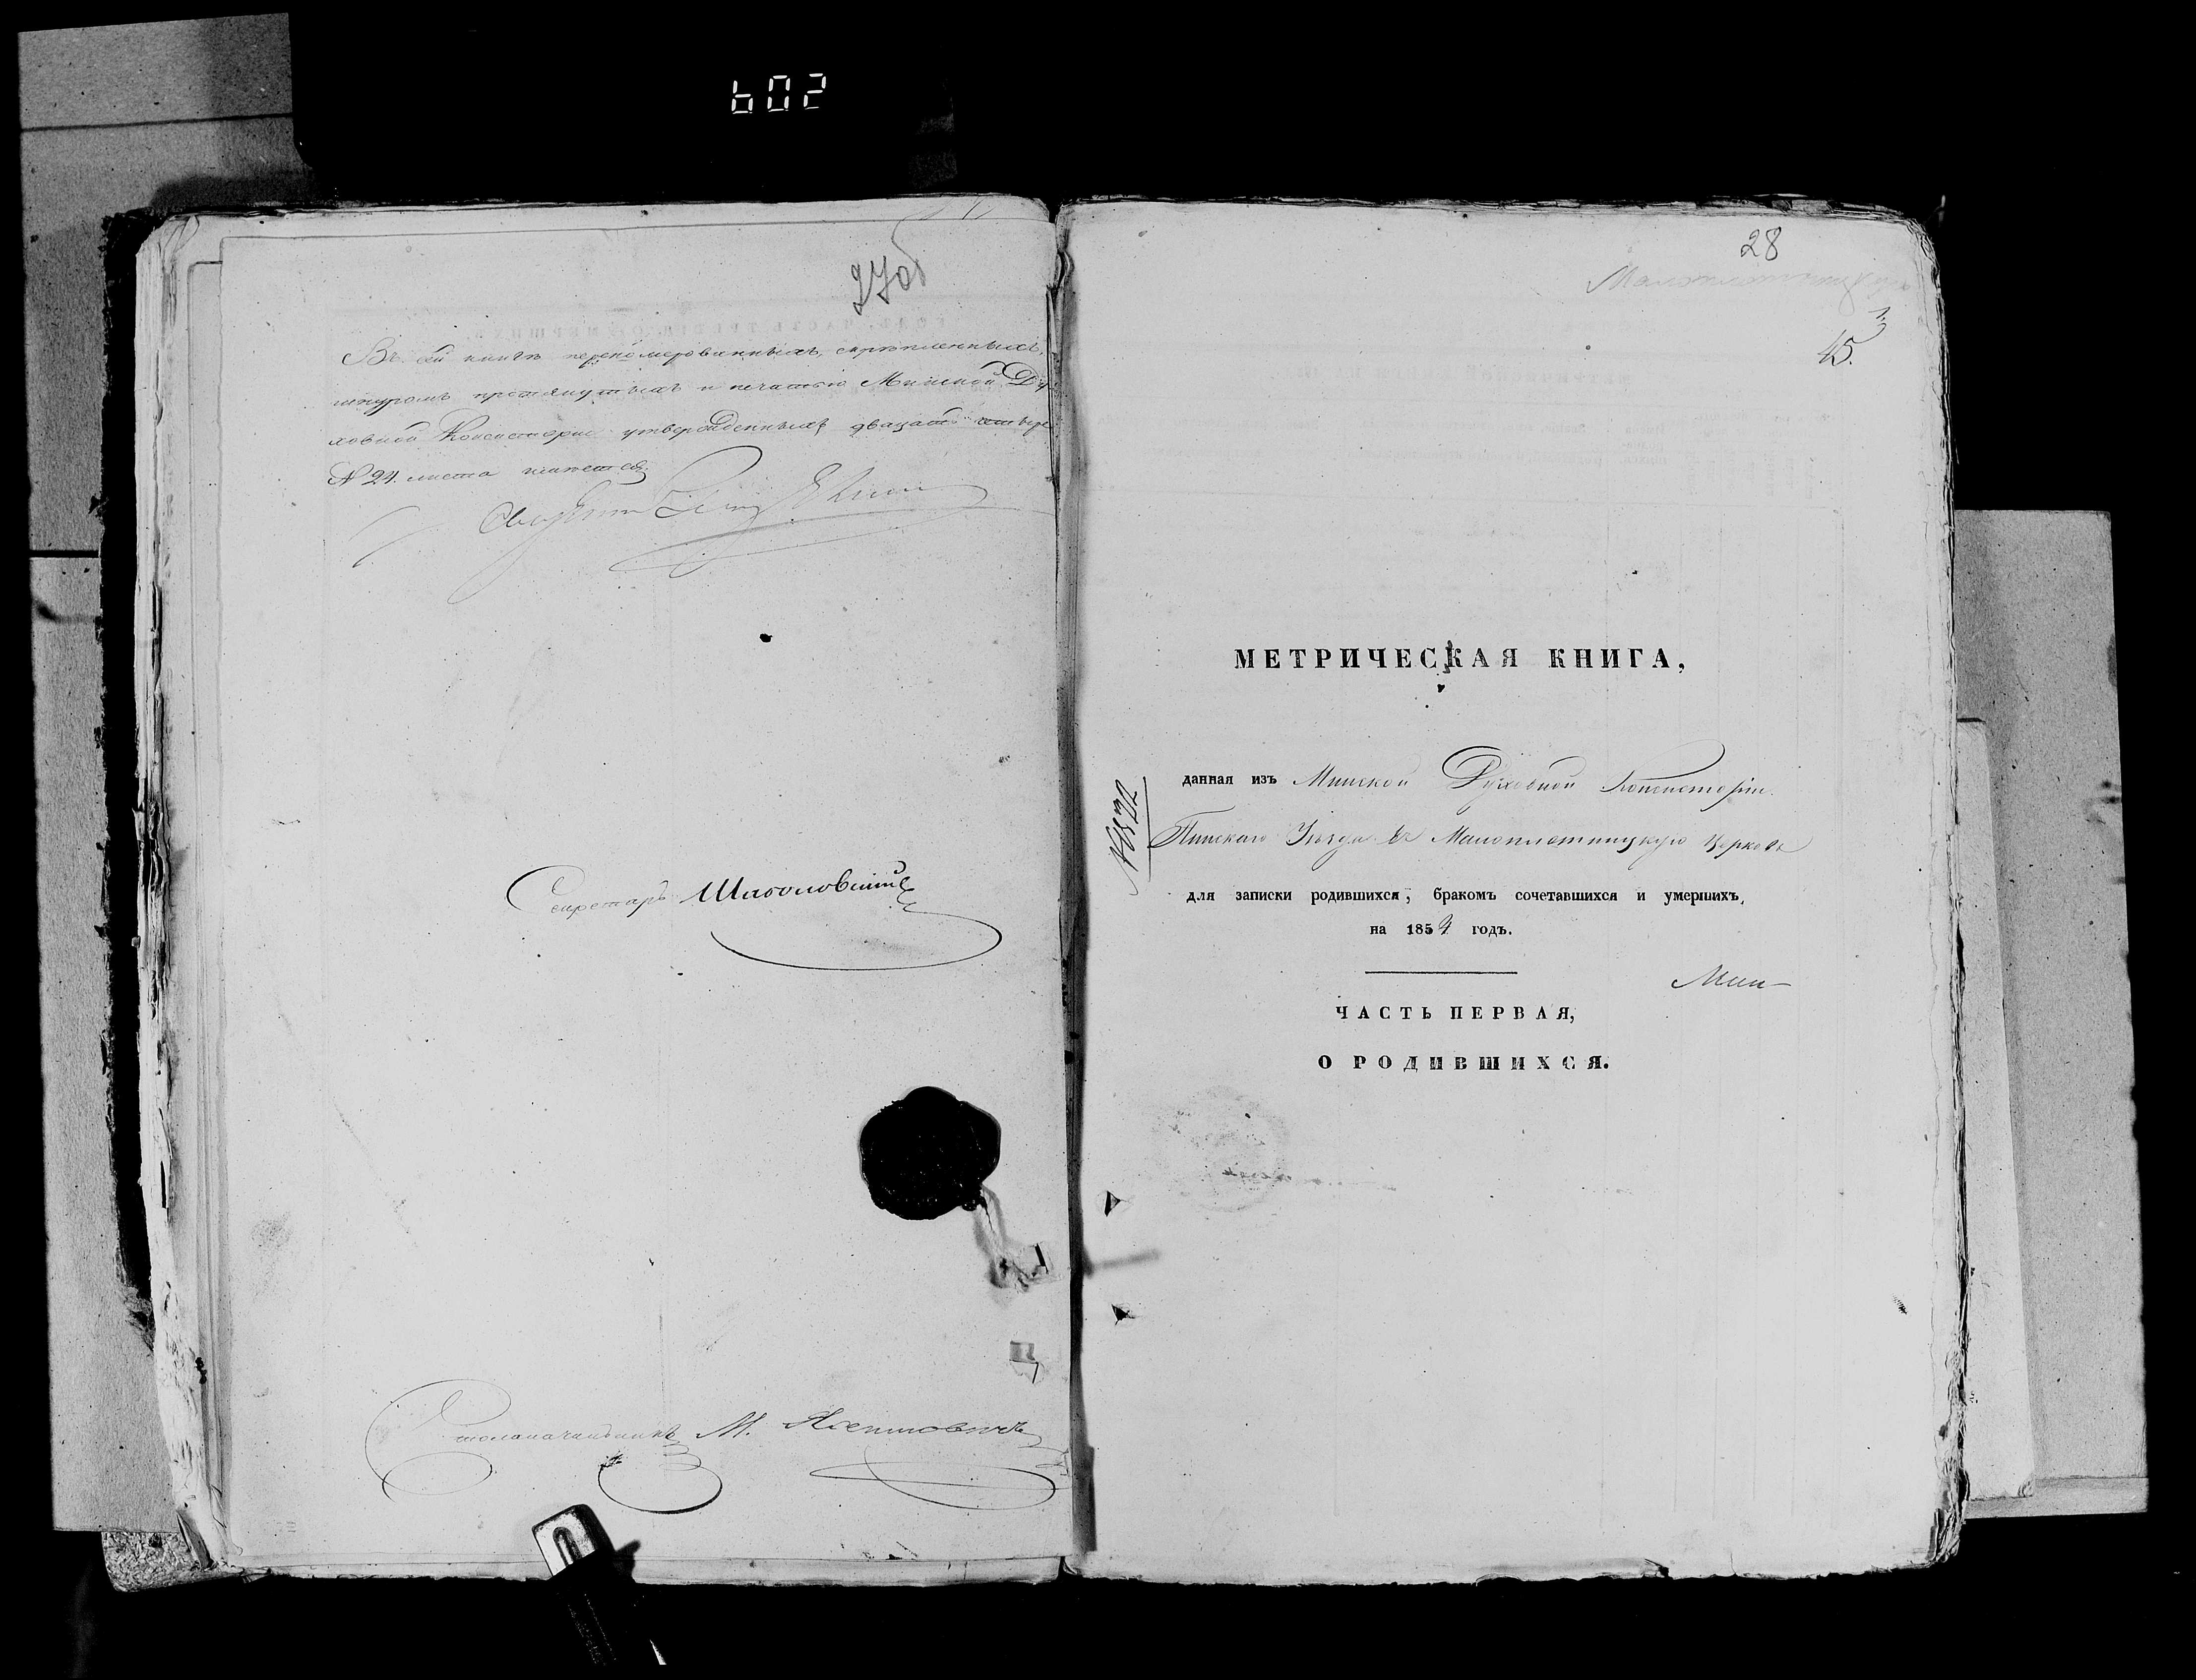 602
27об
Въ сей книгѣ перепомерованныхъ, скрѣпленныхъ,
шнуромъ протянутыхъ и печатью Минской Ду-
ховной Консисторіи утвержденныхъ двадцать четыре
№ 24. листа имѣется
Секретарь
Столоначальникъ М.
28
Малоплотницкую
45.
МЕТРИЧЕСКАЯ КНИГА,
данная изъ Минской Духовной Консисторіи
Пинскаго Уѣзда въ Малоплотницкую Церковь
для записки родившихся, бракомъ сочетавшихся и умершихъ,
на 1854 годъ.
Мин-
ЧАСТЬ ПЕРВАЯ,
О РОДИВШИХСЯ.